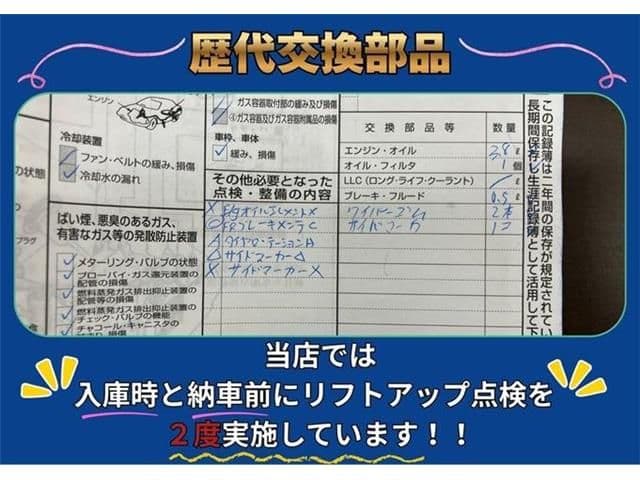 歴代交換部品
エンジン
冷却装置
ファン・ベルトの緩み、損傷
冷却水の漏れ
ばい煙、悪臭のあるガス、
有害なガス等の発散防止装置
メターリング・バルブの状態
ブローバイ・ガス還元装置の
配管の損傷
燃料蒸発ガス排出抑止装置の
配管等の損傷
燃料蒸発ガス排出抑止装置の
チェック・バルブの機能
チャコール・キャニスタの
の状態
プラグ
ガス容器取付部の緩み及び損傷
④ガス容器及びガス容器附属品の損傷
車枠、車体
緩み、損傷
その他必要となった
点検・整備の内容
X オイルエレメントX
ブレーキメンテC
タイヤローテーションA
サイドマーカー
X サイドマーカーX
交換部品等 数量
エンジン・オイル 3.8 ℓ
オイル・フィルタ 1 個
LLC(ロング・ライフ・クーラント) ℓ
ブレーキ・フルード 0.5 ℓ
ワイパーゴム 2本
サイドマーカ 1コ
この記録簿は二年間の保存が規定されてい
長期間保存し生涯記録簿として活用して下
当店では
入庫時と納車前にリフトアップ点検を
２度実施しています！！